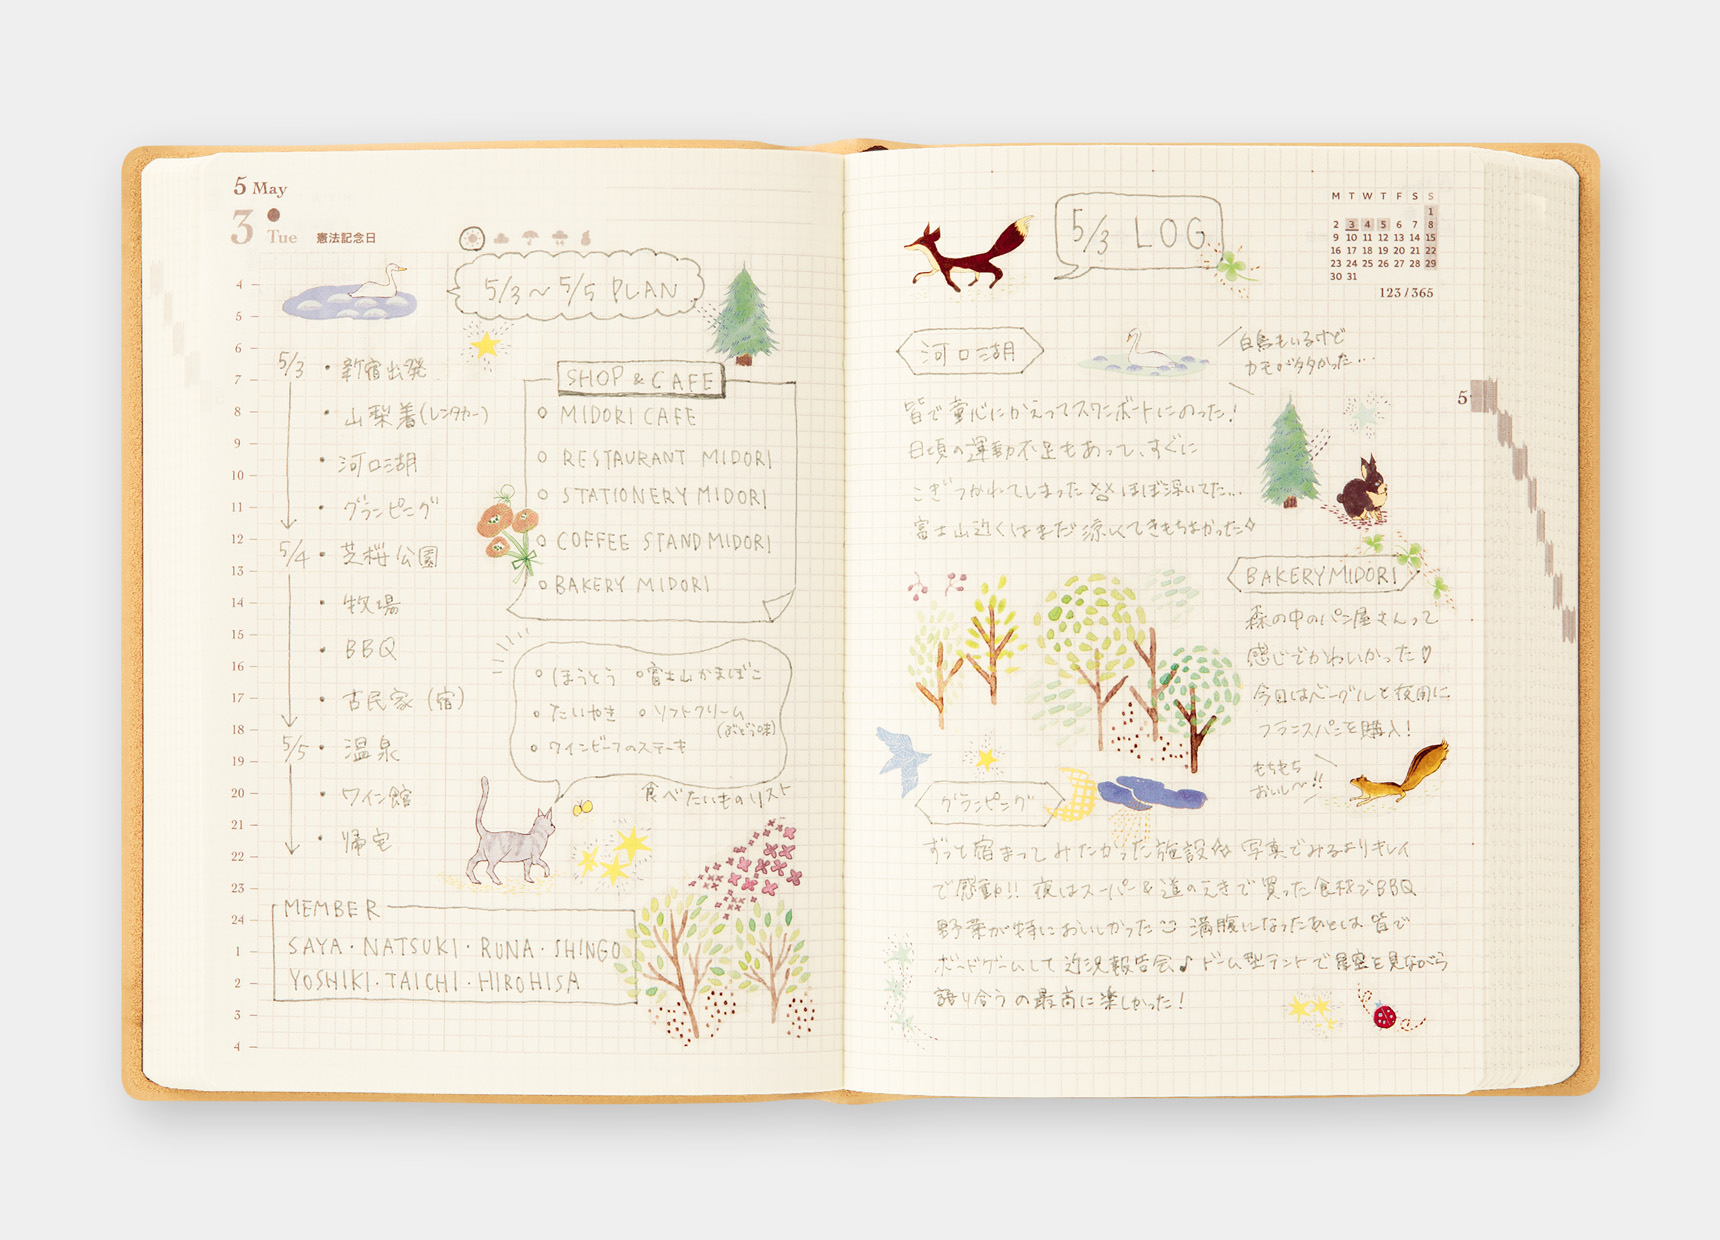 5 May
3 Tue 憲法記念日
5/3～5/5 PLAN
4
5
6
7
8
9
10
11
12
13
14
15
16
17
18
19
20
21
22
23
24
1
2
3
4
5/3 ・新宿出発
・山梨着(レンタカー)
・河口湖
・グランピング
5/4 ・芝桜公園
・牧場
・BBQ
・古民家(宿)
5/5 ・温泉
・ワイン館
・帰宅
SHOP & CAFE
○ MIDORI CAFE
○ RESTAURANT MIDORI
○ STATIONERY MIDORI
○ COFFEE STAND MIDORI
○ BAKERY MIDORI
○ほうとう ○富士山かまぼこ
○たいやき ○ソフトクリーム
(ぶどう味)
○ワインビーフのステーキ
食べたいものリスト
MEMBER
SAYA・NATSUKI・RUNA・SHINGO
YOSHIKI・TAICHI・HIROHISA
5/3 LOG
M T W T F S S
1
2 3 4 5 6 7 8
9 10 11 12 13 14 15
16 17 18 19 20 21 22
23 24 25 26 27 28 29
30 31
123/365
5
河口湖
白鳥もいるけど
カモが多かった...
皆で童心にかえってスワンボートにのった!
日頃の運動不足もあって、すぐに
こぎつかれてしまった ほぼ浮いてた...
富士山近くはまだ涼しくてきもちよかった
BAKERY MIDORI
森の中のパン屋さんって
感じでかわいかった♡
今日はベーグルと夜用に
フランスパンを購入!
もちもち
おいし〜!!
グランピング
ずっと宿まってみたかった施設☆ 写真でみるよりキレイ
で感動!! 夜はスーパー&道のえきで買った食材でBBQ
野菜が特においしかった 満腹になったあとは皆で
ボードゲームして近況報告会♪ ドーム型テントで星空を見ながら
語り合うの最高に楽しかった!